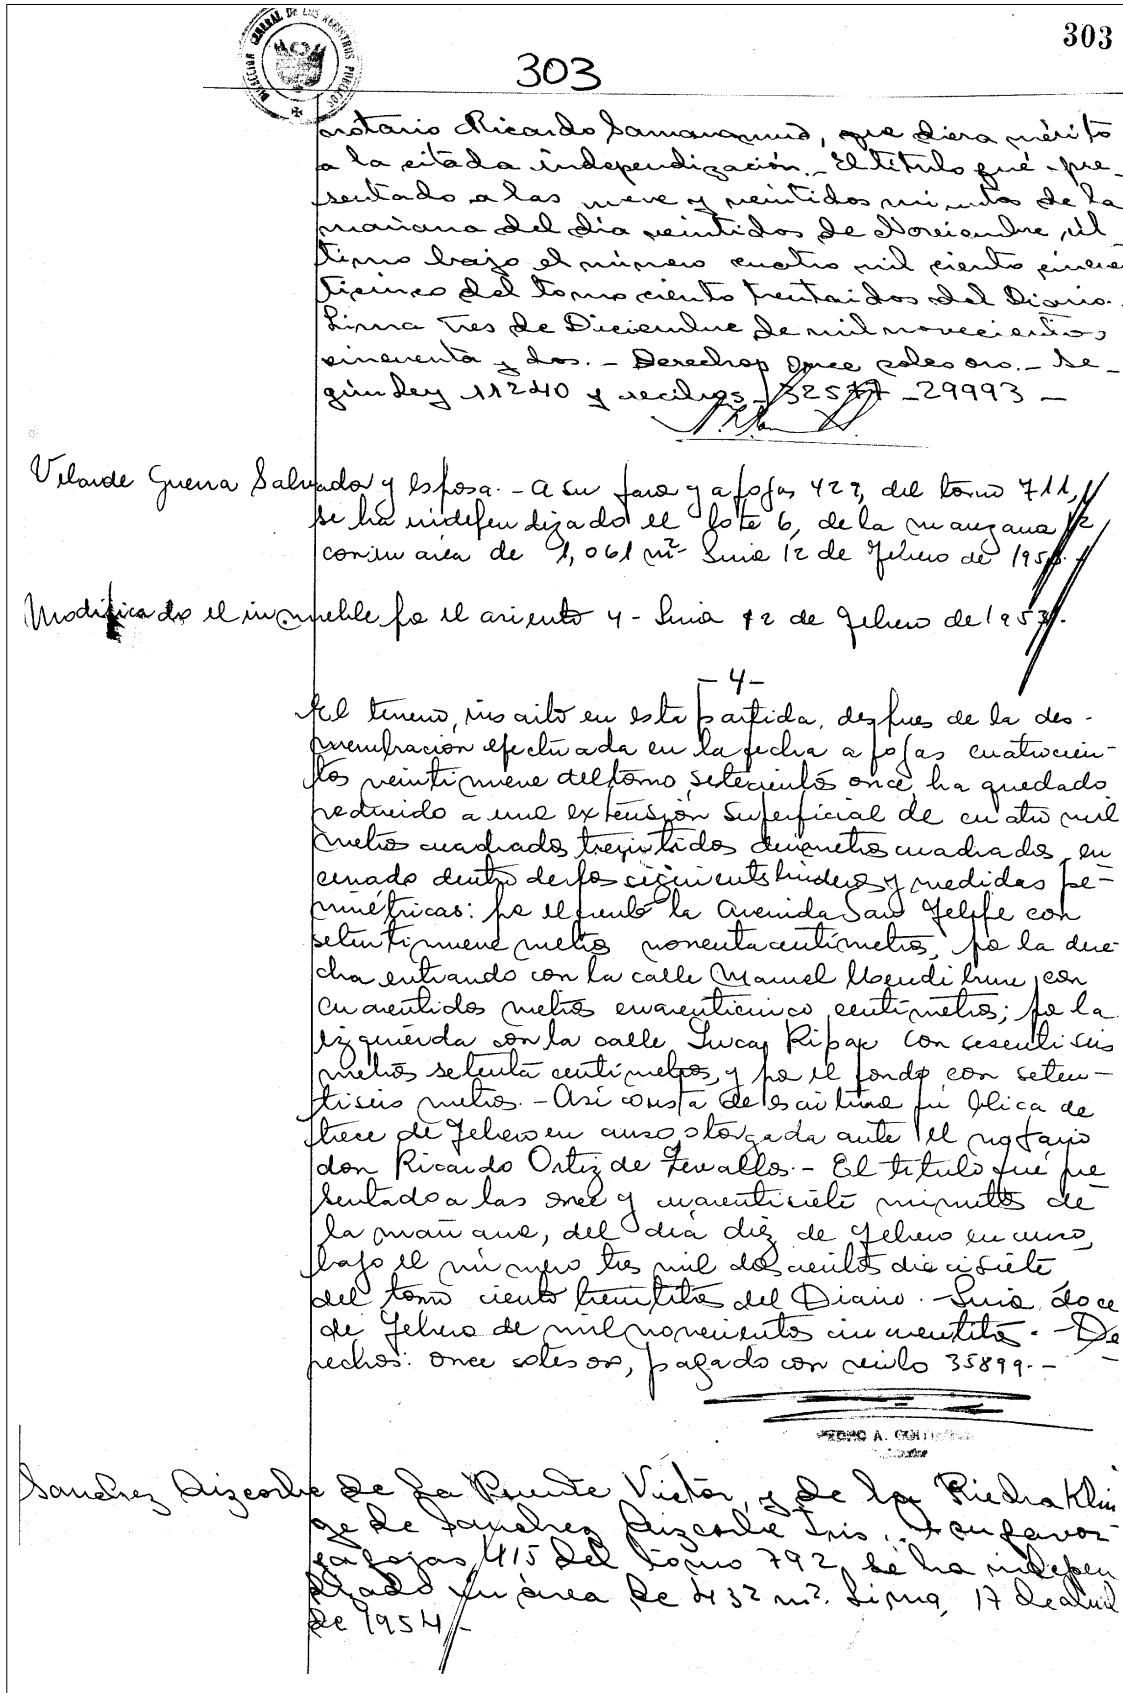 DIRECCION GENERAL DE LOS REGISTROS PUBLICOS
303
303
notario Ricardo Samanamud, que diera mérito
a la citada independización. - El título fué pre-
sentado a las nueve y veintidos minutos de la
mañana del día veintidos de Noviembre úl-
timo bajo el número cuatro mil ciento cincuen
ticinco del tomo ciento trentaidos del Diario.
Lima tres de Diciembre de mil novecientos
cincuenta y dos. - Derechos once soles oro. - Se-
gún Ley 11240 y recibos 32577 - 29993 -
Velarde Guerra Salvador y esposa. - A su favor y a fojas 429, del tomo 711,
se ha independizado el lote 6, de la manzana 12
con un area de 1,061 m² Lima 12 de Febrero de 1953.
Modificado el inmueble por el asiento 4 - Lima 12 de Febrero de 1953.
- 4 -
El terreno, inscrito en esta partida, despues de la des-
membración efectuada en la fecha a fojas cuatrocien-
tos veintinueve del tomo setecientos once, ha quedado
reducido a una extensión superficial de cuatro mil
metros cuadrados treintidos decimetros cuadrados, en
cerrado dentro de los siguientes linderos y medidas pe-
rimétricas: por el frente la Avenida San Felipe con
setentinueve metros noventa centímetros, por la dere
cha entrando con la calle Manuel Mendiburu, con
cuarentidos metros cuarenticinco centímetros; por la
izquierda con la calle Lucas Ripac con sesentiseis
metros setenta centímetros, y por el fondo con seten-
tiseis metros. - Así consta de escritura pública de
trece de Febrero en curso otorgada ante el notario
don Ricardo Ortiz de Zevallos. - El titulo fué pre
sentado a las once y cuarentisiete minutos de
la mañana, del día diez de Febrero en curso,
bajo el número tres mil doscientos diecisiete
del tomo ciento trentitres del Diario. - Lima doce
de Febrero de mil novecientos cincuentitres. - De
rechos: once soles oro, pagado con recibo 35899. -
PEDRO A.
Sanchez Aizcorbe de La Puente Victor, y de la Piedra Klin
ge de Sanchez Aizcorbe Iris. A su favor
y a fojas 415 del tomo 792, se ha indepen
dizado un área de 432 m². Lima, 17 de abril
de 1954 -